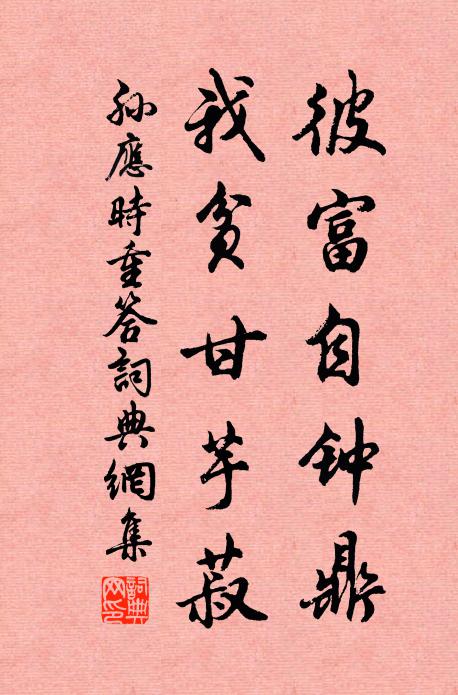 彼富自钟鼎
我贫甘芋菽
孙應時重答詞典網集
詞典網印